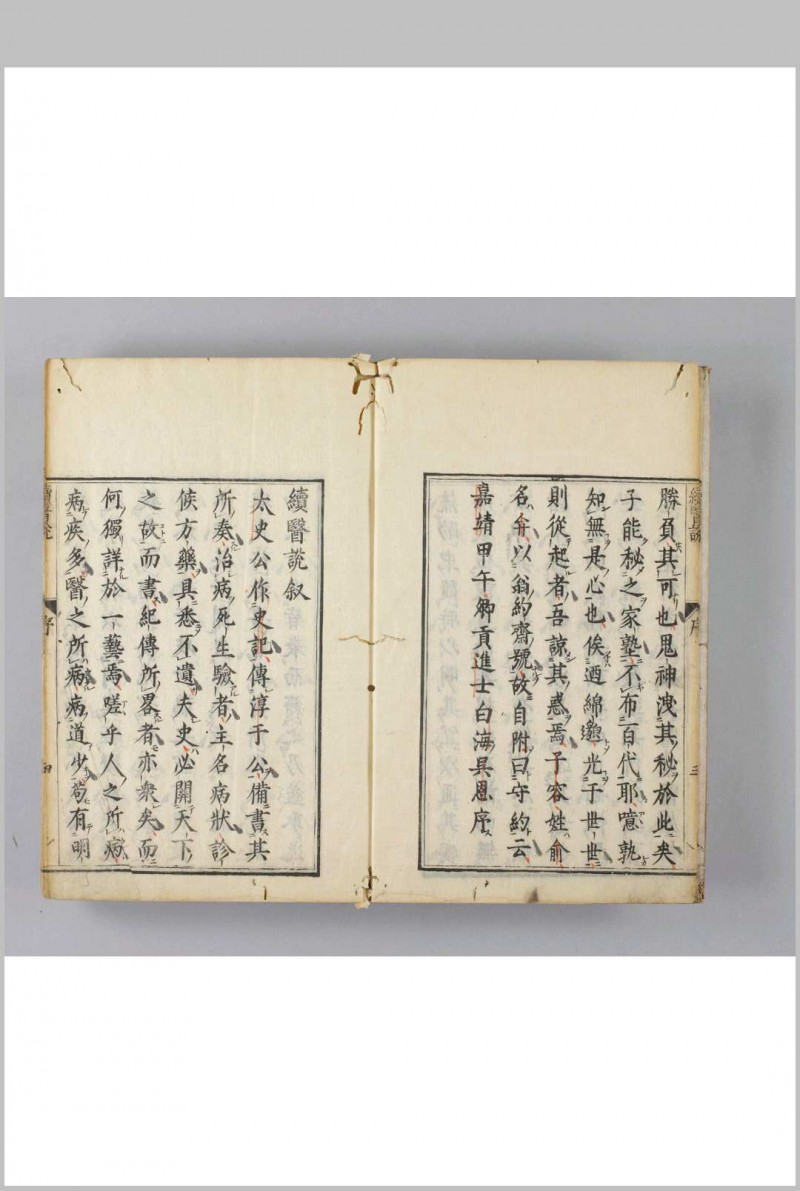 勝負其可也鬼神洩其秘於此矣
子能秘之家塾不布百代耶噫孰
知無是心也俟迺綿邈光于世世
則從起者吾諒其惑焉子容姓俞
名弁以翁約齋號故自附曰守約云
嘉靖甲午鄉貢進士白海吳恩序
續醫說叙
太史公作史記傳淳于公備書其
所奏治病死生驗者主名病狀診
候方藥具悉不遺夫史必關天下
之故而書紀傳所畧者亦衆矣而
何獨詳於一藝焉嗟乎人之所病
病疾多醫之所病病道少苟有明